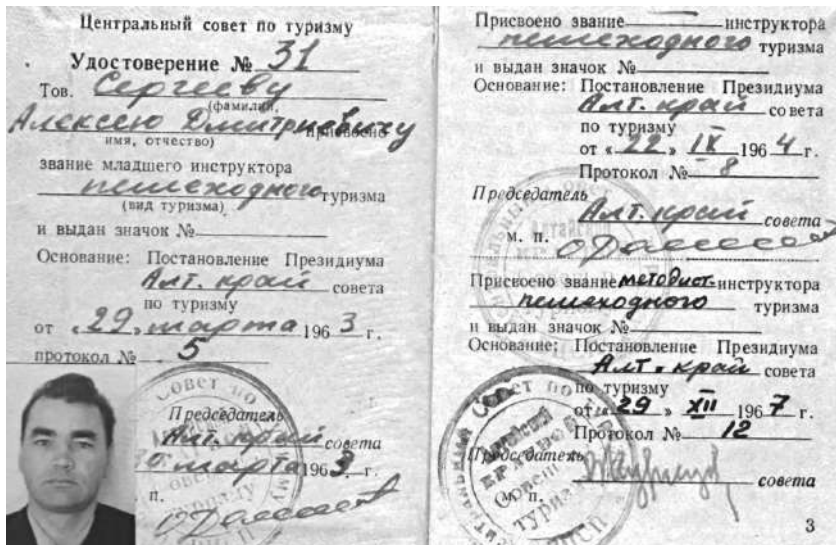 Центральный совет по туризму
Удостоверение № 31
Тов. Сергееву
(фамилия,
Алексею Дмитриевичу присвоено
имя, отчество)
звание младшего инструктора
пешеходного туризма
(вид туризма)
и выдан значок №
Основание: Постановление Президиума
Алт. край совета
по туризму
от «29» марта 1963 г.
протокол № 5
Председатель
Алт. край совета
30 марта 1963 г.
п.
Присвоено звание инструктора
пешеходного туризма
и выдан значок №
Основание: Постановление Президиума
Алт. край совета
по туризму
от «22» IX 1964 г.
Протокол № 8
Председатель
Алт. край совета
м. п.
Присвоено звание методист-инструктора
пешеходного туризма
и выдан значок №
Основание: Постановление Президиума
Алт. край совета
по туризму
от «29» XII 1967 г.
Протокол № 12
Председатель
совета
м. п.
совет по туризму
Алтайский
краевой
Совет по
туризму
3